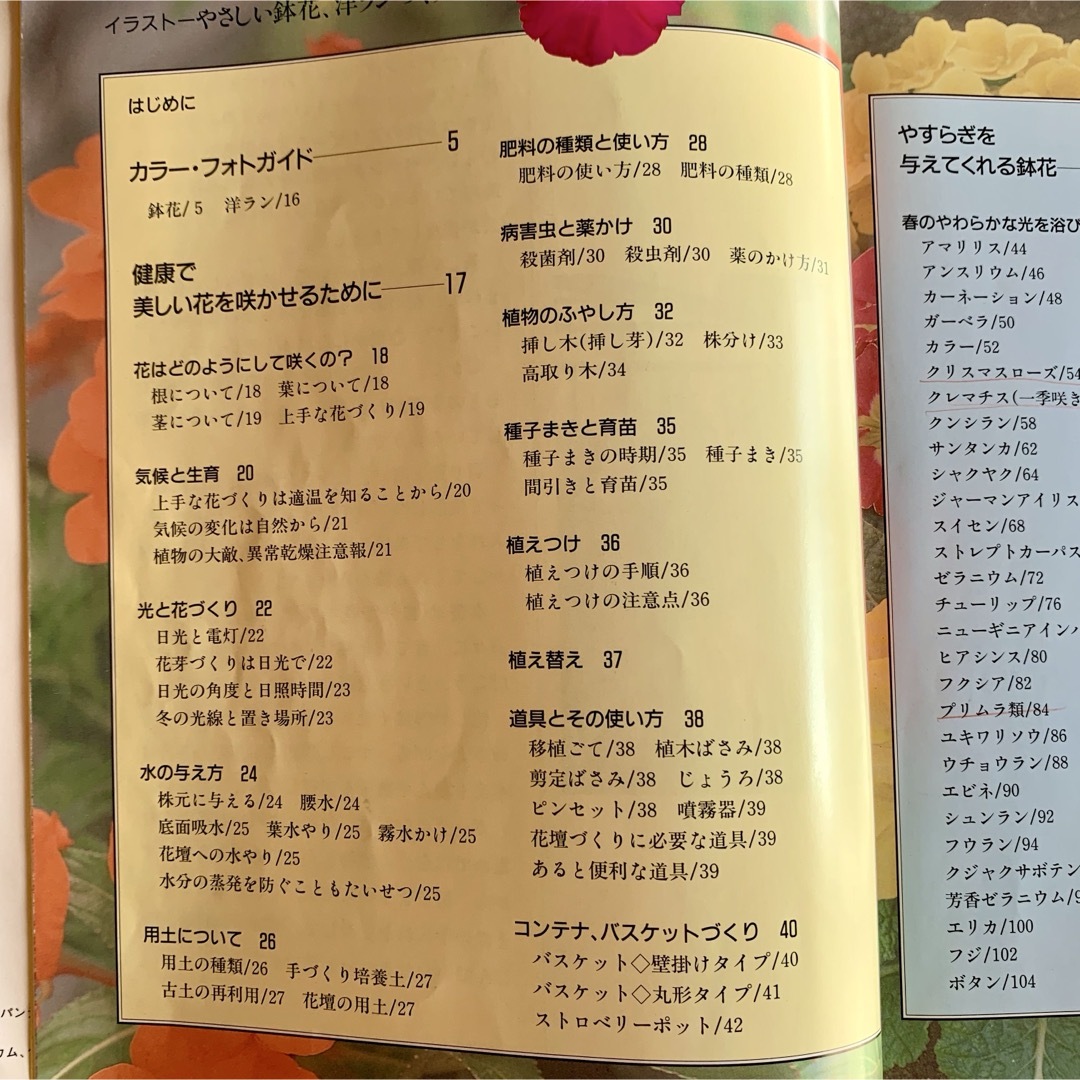 イラストーやさしい鉢花、洋ラン
はじめに
カラー・フォトガイド 5
鉢花/5 洋ラン/16
健康で
美しい花を咲かせるために 17
花はどのようにして咲くの? 18
根について/18 葉について/18
茎について/19 上手な花づくり/19
気候と生育 20
上手な花づくりは適温を知ることから/20
気候の変化は自然から/21
植物の大敵、異常乾燥注意報/21
光と花づくり 22
日光と電灯/22
花芽づくりは日光で/22
日光の角度と日照時間/23
冬の光線と置き場所/23
水の与え方 24
株元に与える/24 腰水/24
底面吸水/25 葉水やり/25 霧水かけ/25
花壇への水やり/25
水分の蒸発を防ぐこともたいせつ/25
用土について 26
用土の種類/26 手づくり培養土/27
古土の再利用/27 花壇の用土/27
肥料の種類と使い方 28
肥料の使い方/28 肥料の種類/28
病害虫と薬かけ 30
殺菌剤/30 殺虫剤/30 薬のかけ方/31
植物のふやし方 32
挿し木(挿し芽)/32 株分け/33
高取り木/34
種子まきと育苗 35
種子まきの時期/35 種子まき/35
間引きと育苗/35
植えつけ 36
植えつけの手順/36
植えつけの注意点/36
植え替え 37
道具とその使い方 38
移植ごて/38 植木ばさみ/38
剪定ばさみ/38 じょうろ/38
ピンセット/38 噴霧器/39
花壇づくりに必要な道具/39
あると便利な道具/39
コンテナ、バスケットづくり 40
バスケット◇壁掛けタイプ/40
バスケット◇丸形タイプ/41
ストロベリーポット/42
やすらぎを
与えてくれる鉢花
春のやわらかな光を浴び
アマリリス/44
アンスリウム/46
カーネーション/48
ガーベラ/50
カラー/52
クリスマスローズ/54
クレマチス(一季咲き
クンシラン/58
サンタンカ/62
シャクヤク/64
ジャーマンアイリス
スイセン/68
ストレプトカーパス
ゼラニウム/72
チューリップ/76
ニューギニアインパ
ヒアシンス/80
フクシア/82
プリムラ類/84
ユキワリソウ/86
ウチョウラン/88
エビネ/90
シュンラン/92
フウラン/94
クジャクサボテン
芳香ゼラニウム/9
エリカ/100
フジ/102
ボタン/104
パン
ウム、